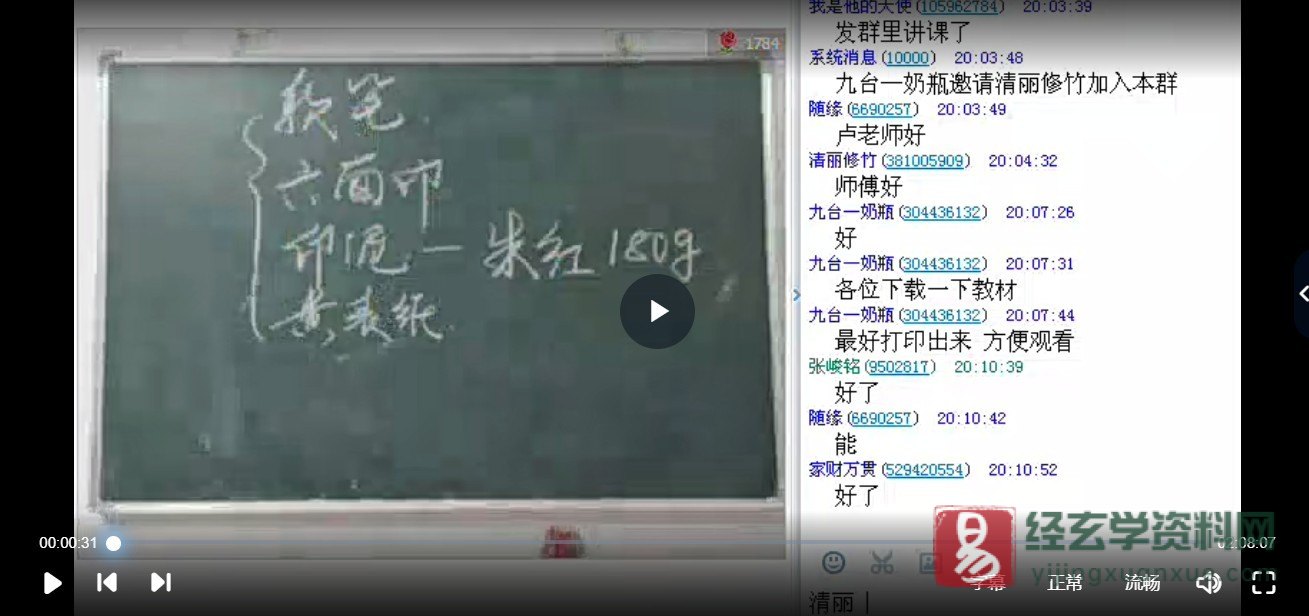 1784
软笔
六面印
印泥 — 朱红 180g
黄表纸
我是他的天使(105962784) 20:03:39
发群里讲课了
系统消息(10000) 20:03:48
九台一奶瓶邀请清丽修竹加入本群
随缘(6690257) 20:03:49
卢老师好
清丽修竹(381005909) 20:04:32
师傅好
九台一奶瓶(304436132) 20:07:26
好
九台一奶瓶(304436132) 20:07:31
各位下载一下教材
九台一奶瓶(304436132) 20:07:44
最好打印出来 方便观看
张峻铭(9502817) 20:10:39
好了
随缘(6690257) 20:10:42
能
家财万贯(529420554) 20:10:52
好了
易 经玄学资料网
yijingxuanxue.com
00:00:31
02:08:07
字幕 正常 流畅
清丽